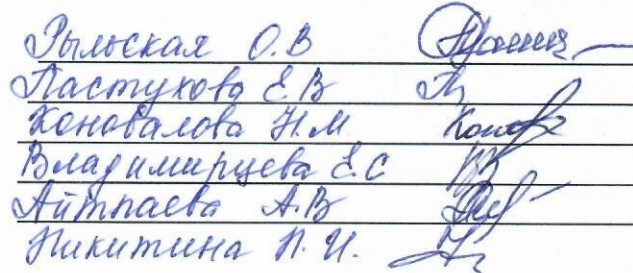 Рыльская О.В
Пастухова Е.В
Коновалова Н.М
Владимирцева Е.С
Айтпаева А.В
Никитина Н.И.